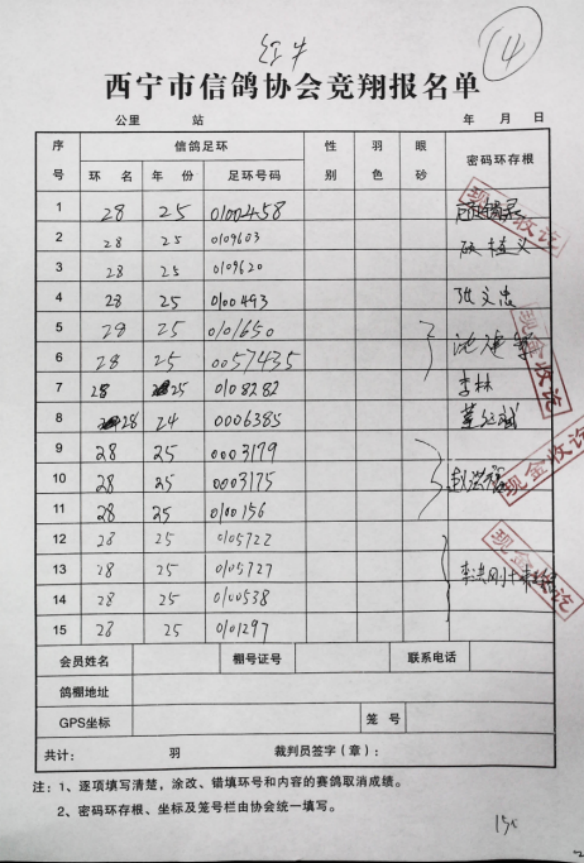 14
西宁市信鸽协会竞翔报名单
公里 站 年 月 日
序号 信鸽足环 性别 羽色 眼砂 密码环存根
环名 年份 足环号码
1 28 25 0100458
2 28 25 0109603
3 28 25 0109620
4 28 25 0100493 张文忠
5 28 25 0101650
6 28 25 0057435
7 28 25 0108282 李林
8 28 24 0006385
9 28 25 0003179
10 28 25 0003175
11 28 25 0100156
12 28 25 0105722
13 28 25 0105727
14 28 25 0100538
15 28 25 0101297
现金收讫
现金收讫
现金收讫
现金收讫
会员姓名 棚号证号 联系电话
鸽棚地址
GPS坐标 笼号
共计: 羽 裁判员签字(章):
注:1、逐项填写清楚,涂改、错填环号和内容的赛鸽取消成绩。
2、密码环存根、坐标及笼号栏由协会统一填写。